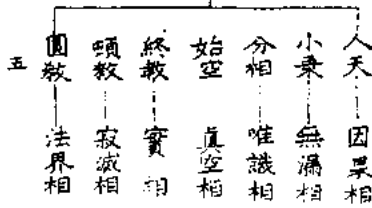 人天 因果相
小乗 無漏相
分相 唯識相
始空 真空相
終教 實相
頓教 寂滅相
圓教 法界相
五